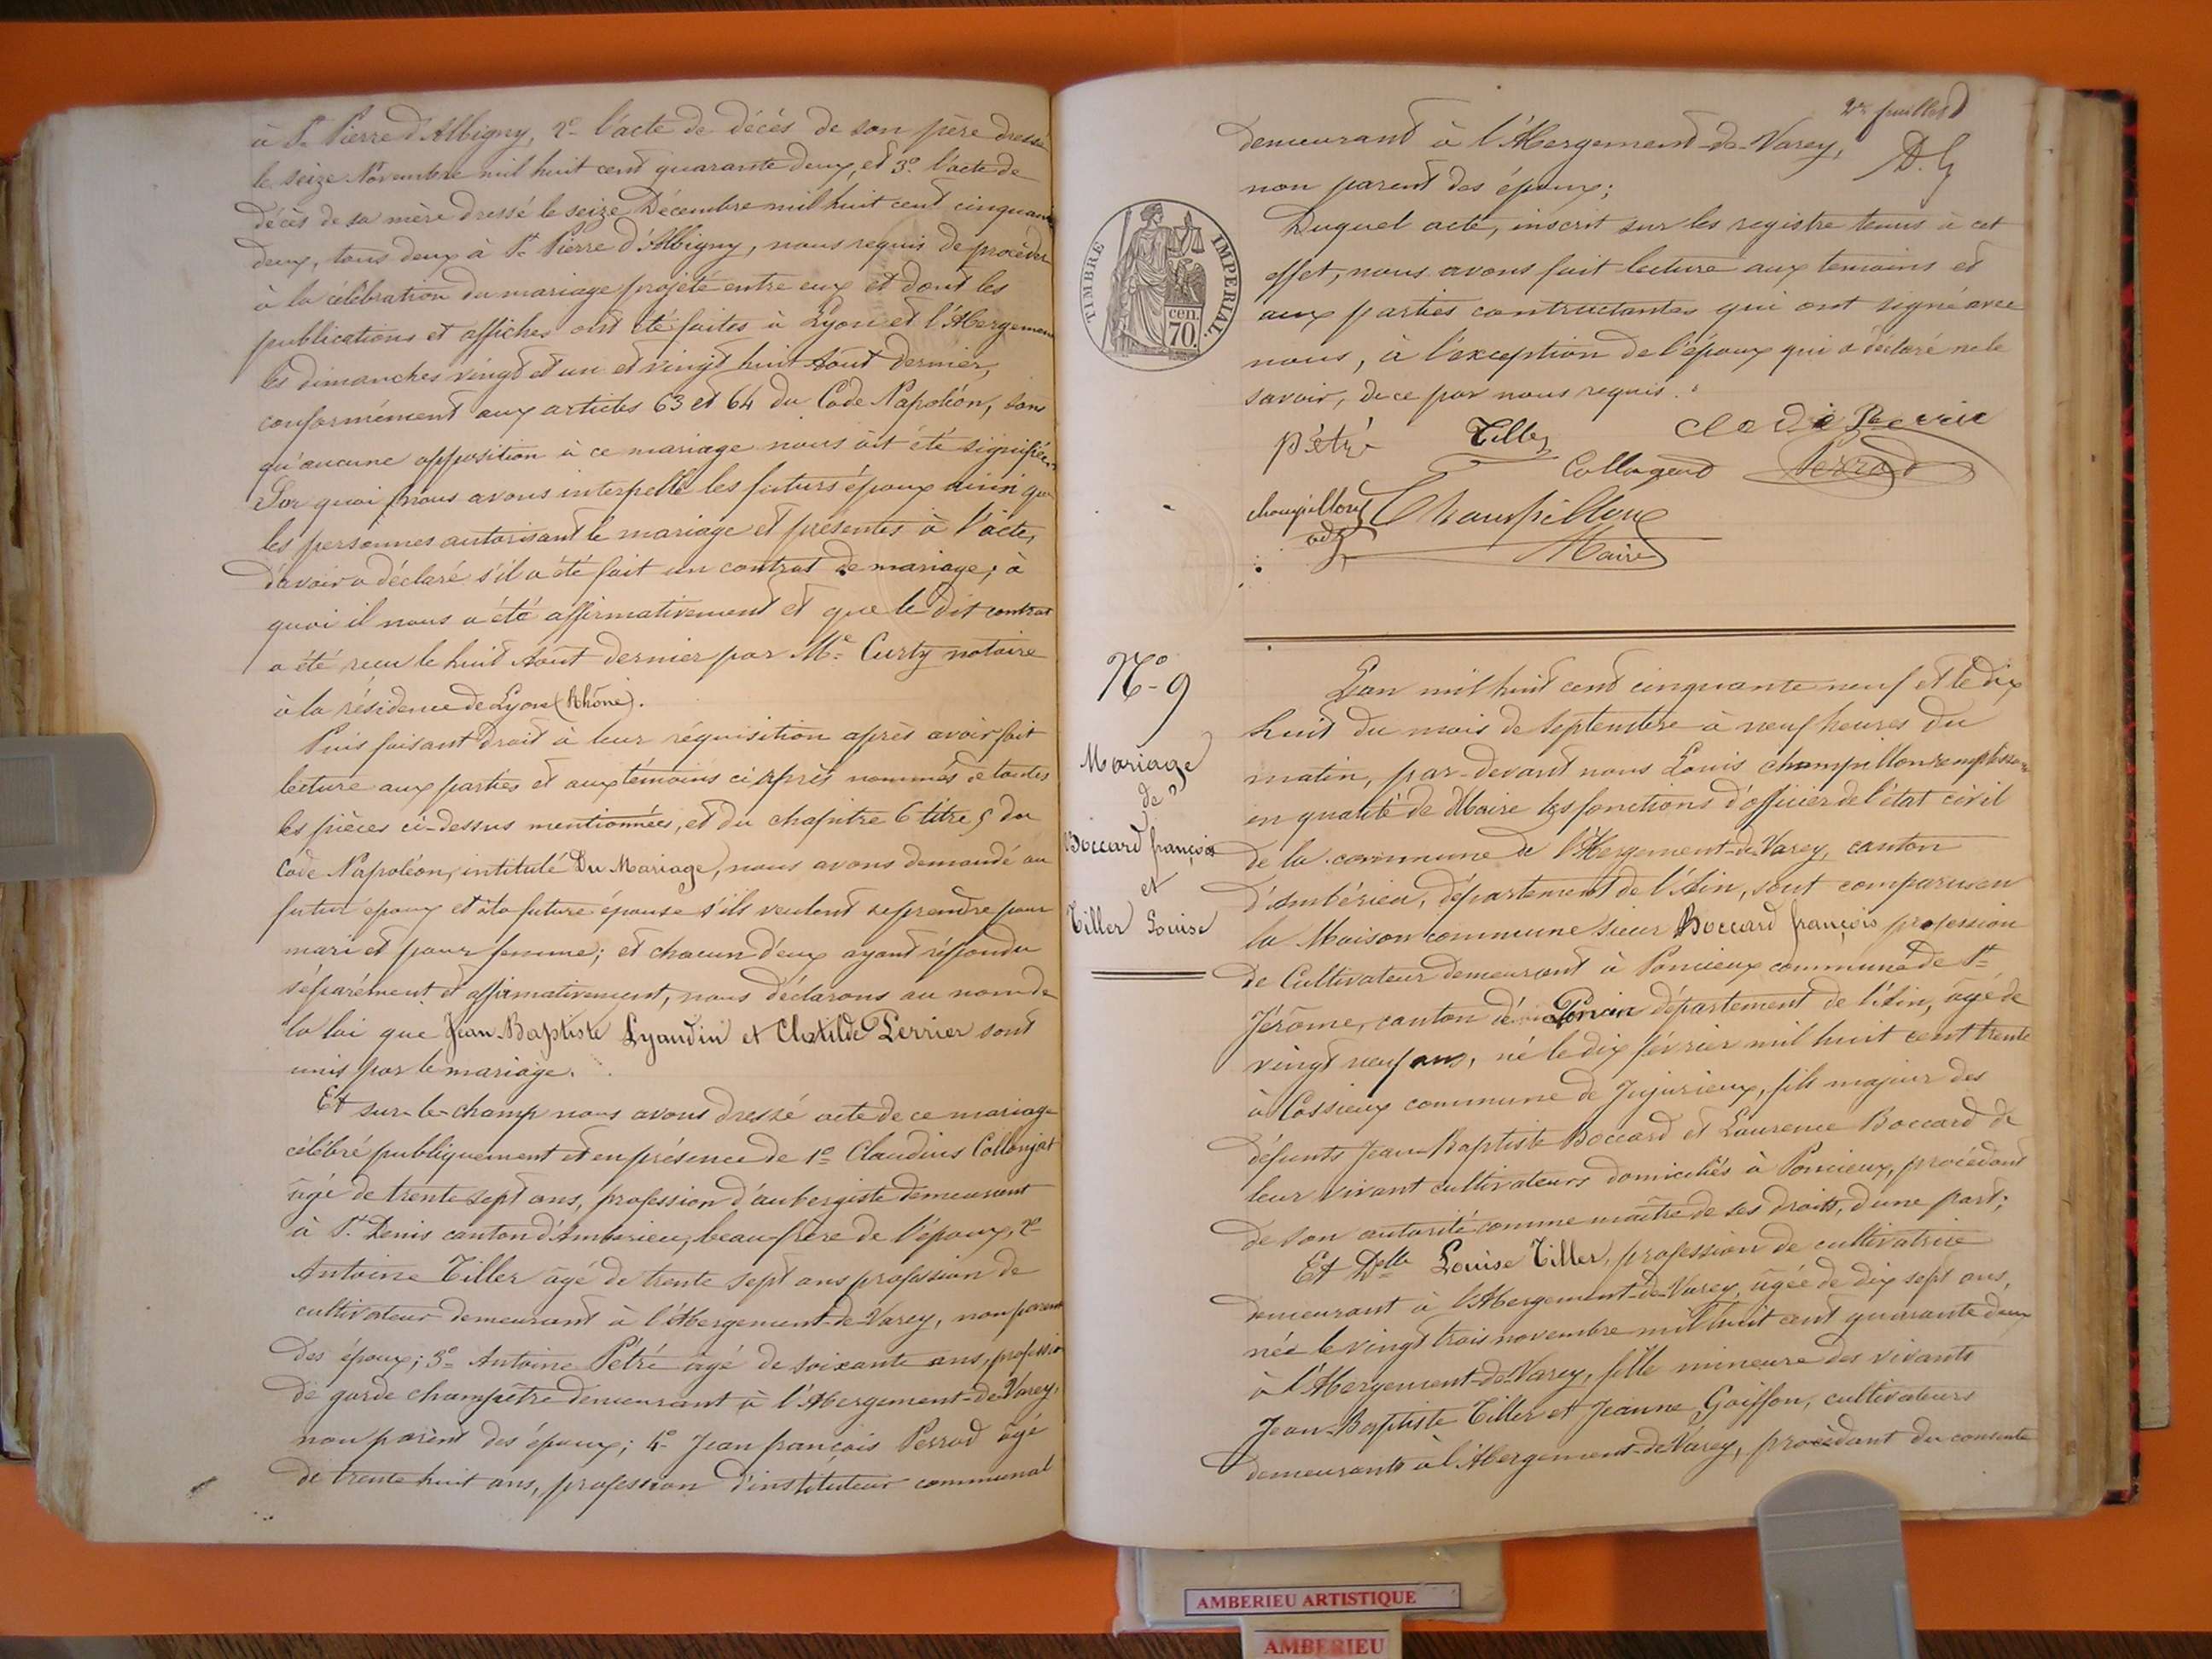 à St Pierre d'Albigny, 2o l'acte de décès de son père dressé
le seize Novembre mil huit cent quarante deux, et 3o l'acte de
décès de sa mère dressé le seize Décembre mil huit cent cinquante
deux, tous deux à St Pierre d'Albigny, nous requis de procéder
à la célébration du mariage projeté entre eux et dont les
publications et affiches ont été faites à Lyon et l'Abergement
les dimanches vingt et un et vingt huit Août dernier,
conformément aux articles 63 et 64 du Code Napoléon, sans
qu'aucune opposition à ce mariage nous ait été signifiée.
Sur quoi nous avons interpellé les futurs époux ainsi que
les personnes autorisant le mariage et présentes à l'acte,
d'avoir a déclaré s'il a été fait un contrat de mariage; à
quoi il nous a été affirmativement et que le dit contrat
a été reçu le huit Août dernier par Me Curty notaire
à la résidence de Lyon (Rhône).
Puis faisant droit à leur réquisition après avoir fait
lecture aux parties et aux témoins ci après nommés de toutes
les pièces ci-dessus mentionnées, et du chapitre 6 titre 5 du
Code Napoléon, intitulé Du Mariage, nous avons demandé au
futur époux et à la future épouse s'ils veulent se prendre pour
mari et pour femme; et chacun d'eux ayant répondu
séparément et affirmativement, nous déclarons au nom de
la loi que Jean-Baptiste Lyaudin et Clotilde Perrier sont
unis par le mariage.
Et sur-le-champ nous avons dressé acte de ce mariage
célébré publiquement et en présence de 1o Claudius Collonjat
âgé de trente sept ans, profession d'aubergiste demeurant
à St Denis canton d'Amberieu, beau frère de l'époux, 2o
Antoine Tiller âgé de trente sept ans profession de
cultivateur demeurant à l'Abergement-de-Varey, non parent
des époux; 3o Antoine Pétré âgé de soixante ans, profession
de garde champêtre demeurant à l'Abergement-de-Varey,
non parent des époux; 4o Jean françois Perrod âgé
de trente huit ans, profession d'instituteur communal
feuillet
demeurant à l'Abergement-de-Varey,
non parent des époux;
Duquel acte, inscrit sur les registre tenus à cet
effet, nous avons fait lecture aux temoins et
aux parties contractantes qui ont signé avec
nous, à l'exception de l'époux qui a déclaré ne le
savoir, de ce par nous requis.
TIMBRE IMPERIAL.
70. cen.
pétré Tiller
Perrod
champillon Champillon
adj Maire
No 9
Mariage
de
Boccard françois
et
Tiller Louise
L'an mil huit cent cinquante neuf et le dix
huit du mois de Septembre à neuf heures du
matin, par-devant nous Louis Champillon remplissant
en qualité de Maire les fonctions d'officier de l'état civil
de la commune de l'Abergement-de-Varey, canton
d'Ambérieu, département de l'Ain, sont comparus en
la Maison commune Sieur Boccard françois profession
de Cultivateur demeurant à Poncieux commune de St
Jérôme, canton de Poncin département de l'Ain, âgé de
vingt neuf ans, né le dix février mil huit cent trente
à Cossieux commune de Jujurieux, fils majeur des
défunts Jean-Baptiste Boccard et Laurence Boccard de
leur vivant cultivateurs domiciliés à Poncieux, procédant
de son autorité comme maître de ses droits, d'une part;
Et Delle Louise Tiller, profession de cultivatrice
demeurant à l'Abergement-de-Varey, âgée de dix sept ans,
née le vingt trois novembre mil huit cent quarante deux
à l'Abergement-de-Varey, fille mineure des vivants
Jean-Baptiste Tiller et Jeanne Goiffon, cultivateurs
demeurants à l'Abergement-de-Varey, procédant du consente
AMBERIEU ARTISTIQUE
AMBERIEU